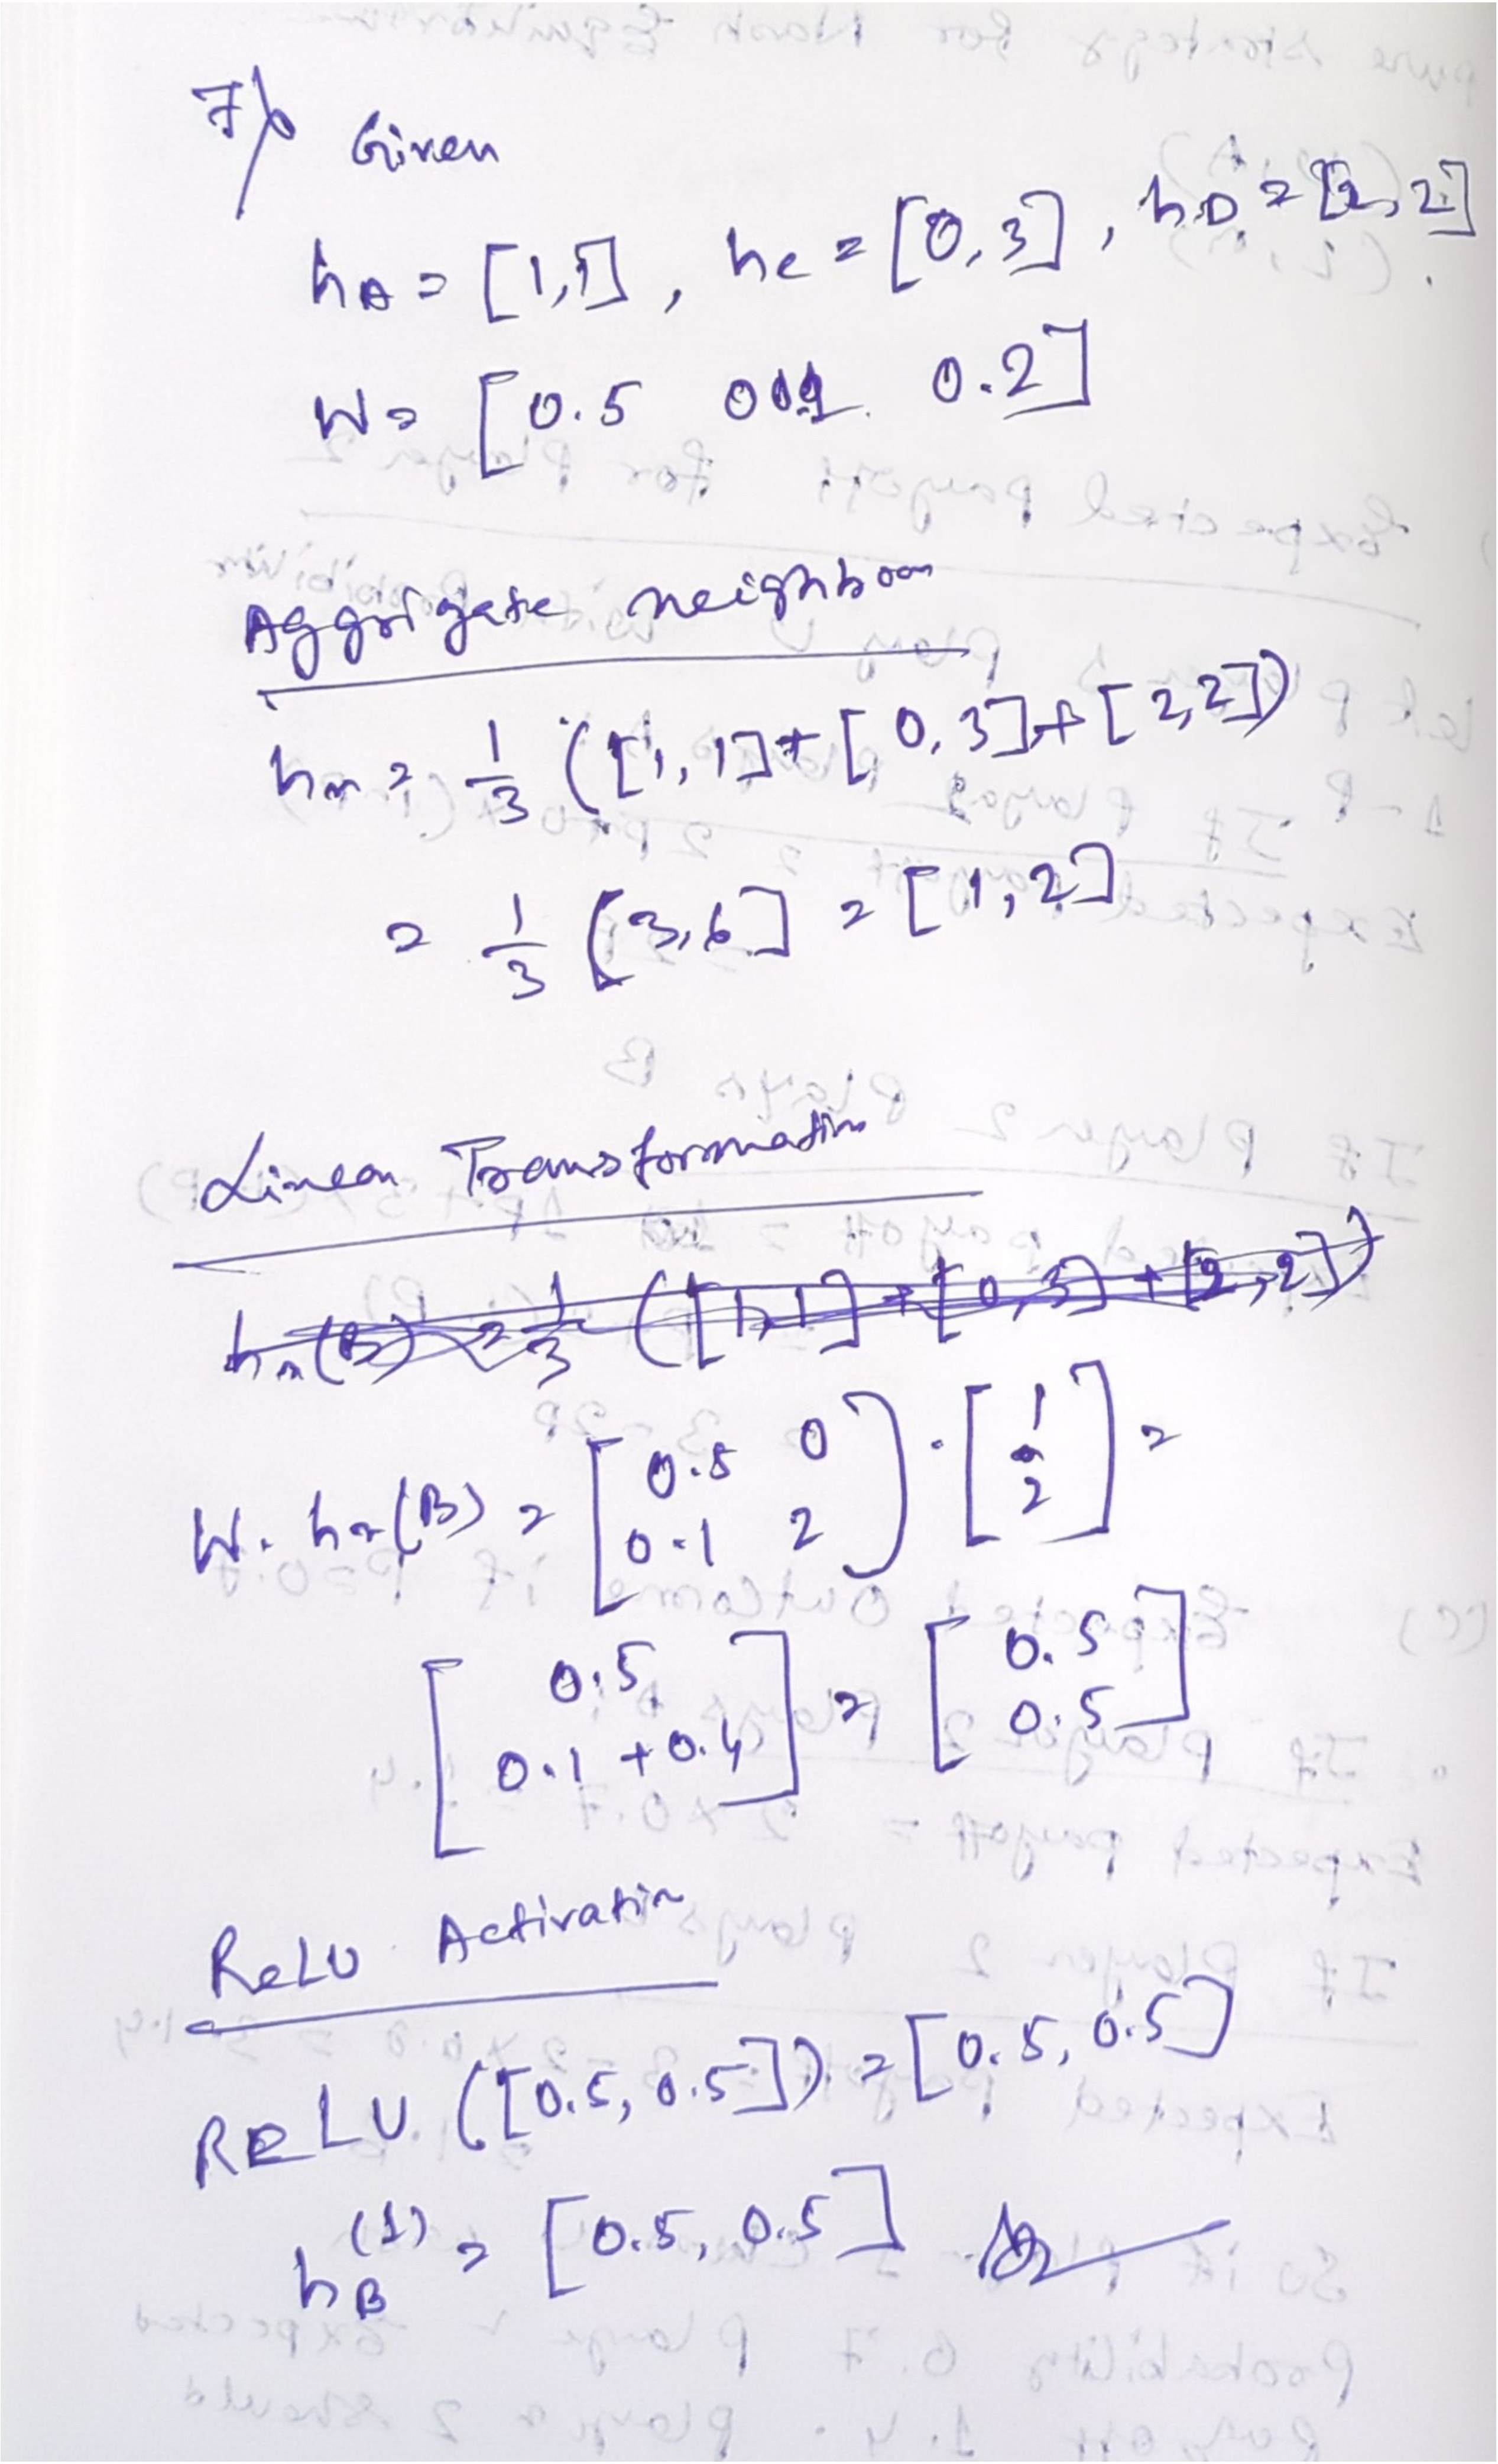 7/b Given
hA = [1,1], hc = [0,3], hD = [2,2]
W = [0.5 0.2]
Aggrigate neighbour
hn = 1/3 ([1,1] + [0,3] + [2,2])
= 1/3 [3,6] = [1,2]
Linear Transformation
hn(B) = 1/3 ([1,1] + [0,3] + [2,2])
W. hn(B) = [0.5 0
0.1 2] . [1
2] =
[0.5
0.1 + 0.4] = [0.5
0.5]
ReLU Activation
RELU ([0.5, 0.5]) = [0.5, 0.5]
hB(1) = [0.5, 0.5]